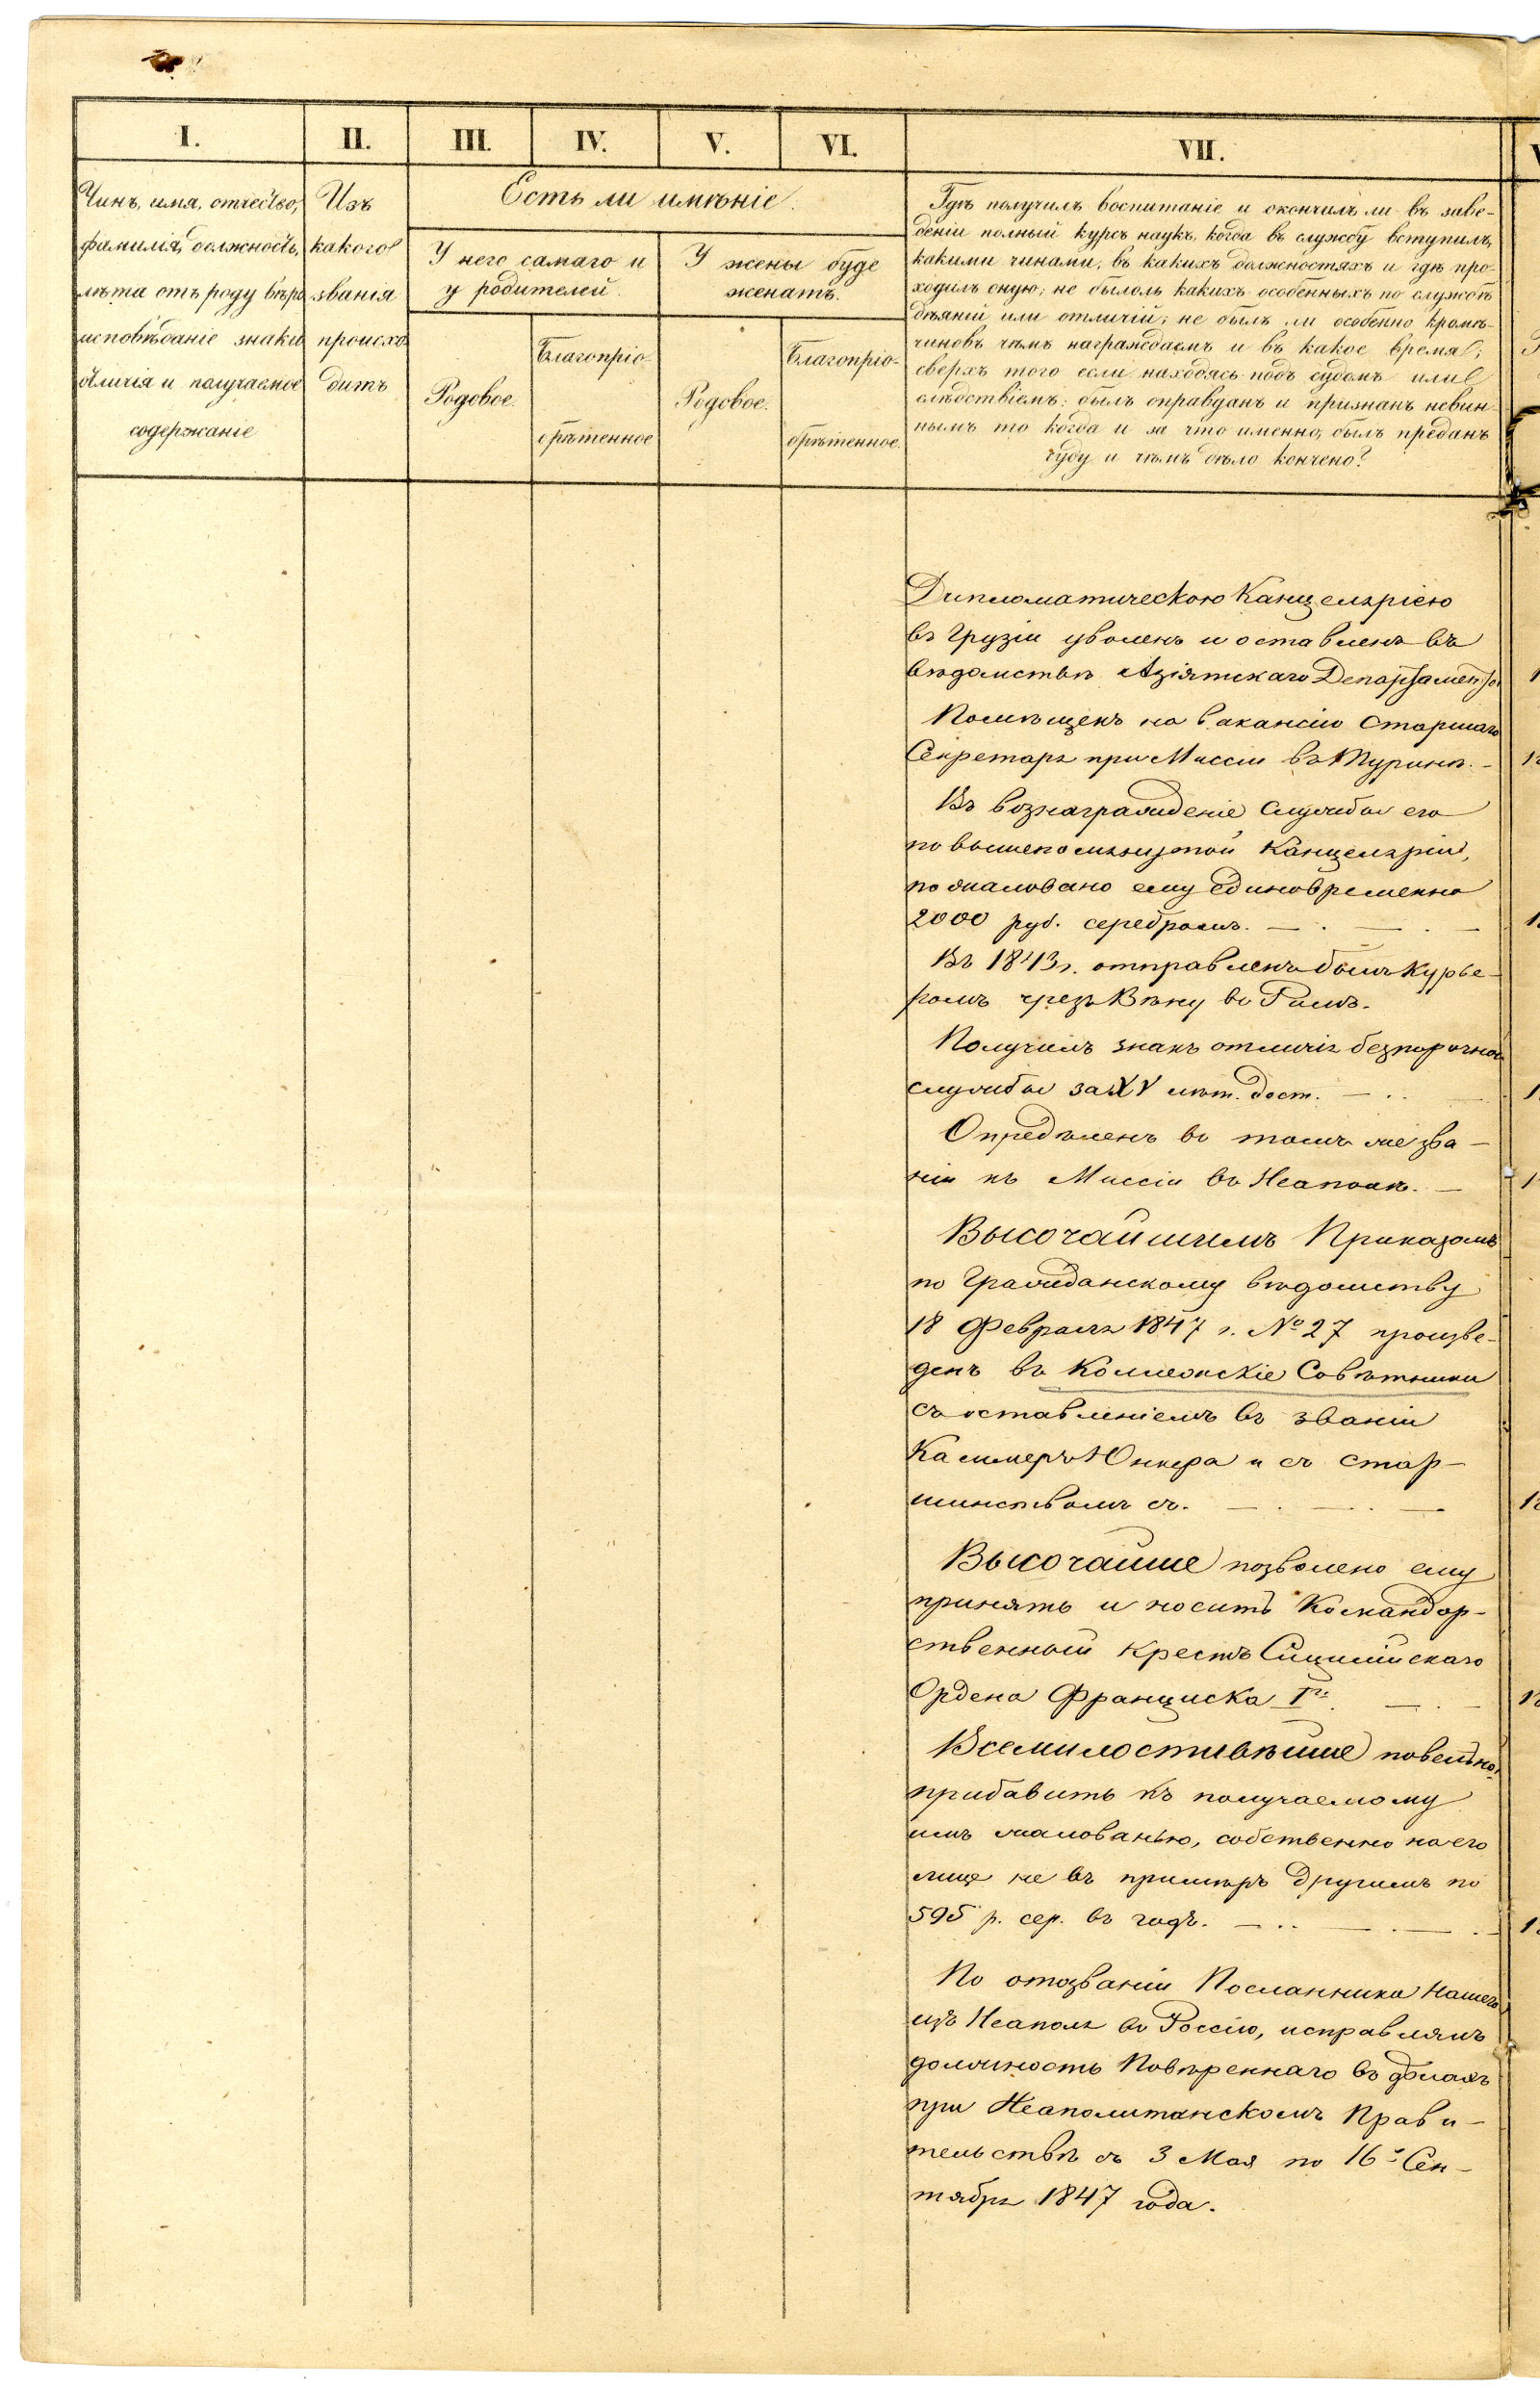 I.
II.
III.
IV.
V.
VI.
VII.
Чинъ, имя, отчество,
фамилія, должность,
лѣта отъ роду вѣро
исповѣданіе знаки
отличія и получаемое
содержаніе
Изъ
какого
званія
происхо
дитъ
Есть ли имѣніе.
У него самаго и
у родителей.
У жены буде
женатъ.
Родовое.
Благопріо-
брѣтенное
Родовое.
Благопріо-
брѣтенное.
Гдѣ получилъ воспитаніе и окончилъ ли въ заве-
деніи полный курсъ наукъ, когда въ службу вступилъ,
какими чинами, въ какихъ должностяхъ и гдѣ про-
ходилъ оную; не былоль какихъ особенныхъ по службѣ
дѣяній или отличій; не былъ ли особенно кромѣ
чиновъ чѣмъ награждаемъ и въ какое время;
сверхъ того если находясь подъ судомъ или
слѣдствіемъ: былъ оправданъ и признанъ невин-
нымъ то когда и за что именно, былъ преданъ
суду и чѣмъ дѣло кончено?
Дипломатическою Канцелярiею
въ Грузіи уволенъ и оставленъ въ
вѣдомствѣ Азіятскаго Департамента
Помѣщенъ на вакансію Старшаго
Секретаря при Миссіи въ Туринѣ. –
Въ вознагражденіе службы его
по вышепомянутой Канцеляріи,
пожаловано ему единовременно
2000 руб. серебромъ. — . — . —
Въ 1843 г. отправленъ былъ Курье-
ромъ чрезъ Вѣну въ Римъ.
Получилъ знакъ отличія безпорочной
службы за XV лѣт. дост. — . . —
Опредѣленъ въ томъ же зва-
ніи къ Миссіи въ Неаполѣ. —
Высочайшимъ Приказомъ
по Гражданскому вѣдомству
18 Февраля 1847 г. № 27 произве-
денъ въ Коллежскіе Совѣтники
съ оставленіемъ въ званіи
Каммеръ-Юнкера и съ стар-
шинствомъ съ. — . — . —
Высочайше позволено ему
принять и носить Командор-
ственный крестъ Сицилійскаго
Ордена Франциска Iго. — . —
Всемилостивѣйше повелѣно
прибавить къ получаемому
имъ жалованью, собственно на его
лице не въ примѣръ другимъ по
595 р. сер. въ годъ. — . . — . — . —
По отозваніи Посланника Нашего
изъ Неаполя въ Россію, исправлялъ
должность Повѣреннаго въ дѣлахъ
при Неаполитанскомъ Прави-
тельствѣ съ 3 Мая по 16е Сен-
тября 1847 года.